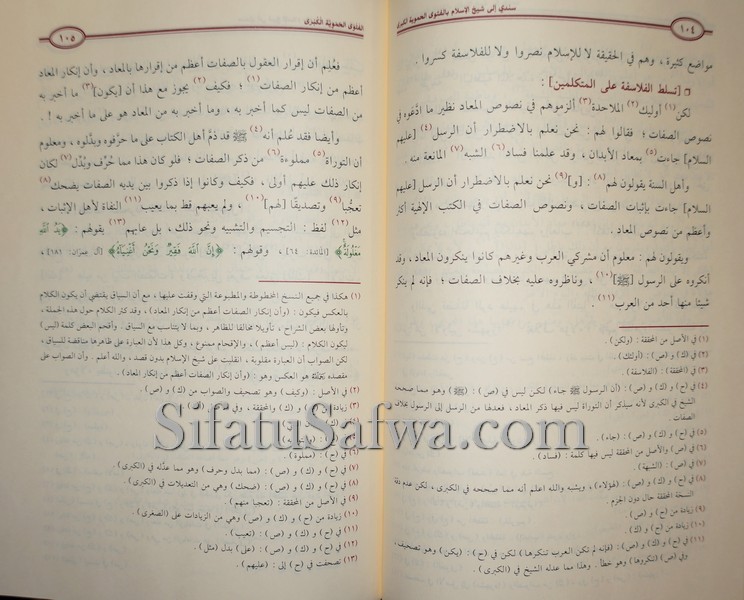 سندي إلى شيخ الإسلام بالفتوى الحموية الكبرى
١٠٤
مواضع كثيرة ، وهم في الحقيقة لا للإسلام نصروا ولا للفلاسفة كسروا .
[تسلط الفلاسفة على المتكلمين] :
لكن(١) أوليك(٢) الملاحدة(٣) ألزموهم في نصوص المعاد نظير ما ادَّعوه في
نصوص الصفات ؛ فقالوا لهم : نحن نعلم بالاضطرار أن الرسل(٤) [عليهم
السلام] جاءت(٥) بمعاد الأبدان ، وقد علمنا فساد(٦) الشبه(٧) المانعة منه .
وأهل السنة يقولون لهم(٨) : [و](٩) نحن نعلم بالاضطرار أن الرسل [عليهم
السلام] جاءت بإثبات الصفات ، ونصوص الصفات في الكتب الإلهية أكثر
وأعظم من نصوص المعاد .
ويقولون لهم : معلوم أن مشركي العرب وغيرهم كانوا ينكرون المعاد ، وقد
أنكروه على الرسول [ﷺ](١٠) ، وناظروه عليه بخلاف الصفات ؛ فإنه لم ينكر
شيئا منها أحد من العرب(١١) .
(١) في الأصل من المحققة : (ولكن) .
(٢) في (ك) و (ص) : (أولئك) .
(٣) في المحققة : (الفلاسفة) .
(٤) في (ح) و (ك) و (ص) : (أن الرسول ﷺ جاء) لكن ليس في (ص) : (ﷺ) وهو مما صححه
الشيخ في الكبرى لأنه سيذكر أن التوراة ليس فيها ذكر المعاد ، فعدلها من الرسل إلى الرسول بخلاف
الصفات
(٥) في (ح) و (ك) و (ص) : (جاء) .
(٦) في (ص) والأصل من المحققة ليس فيها كلمة : (فساد) .
(٧) في (ص) : (الشبهة) .
(٨) في (ح) و (ك) و (ص) : (هؤلاء) ، ويشبه والله اعلم أنه مما صححه في الكبرى ، لكن عدم دقة
النسخة المحققة حال دون الجزم .
(٩) زيادة من (ح) و (ك) و (ص) .
(١٠) زيادة من (ح) .
(١١) في (ح) و (ك) و (ص) : (فإنه لم تكن العرب تنكرها) لكن في (ح) : (يكن) وهو تصحيف ،
وفي (ص) (تنكروها) وهو خطأ . وهذا مما عدله الشيخ في (الكبرى) .
الفتوى الحموية الكبرى
١٠٥
فعُلِم أن إقرار العقول بالصفات أعظم من إقرارها بالمعاد ، وأن إنكار المعاد
أعظم من إنكار الصفات(١) ؛ فكيف(٢) يجوز مع هذا أن [يكون](٣) ما أخبر به
من الصفات ليس كما أخبر به ، وما أخبر به من المعاد هو على ما أخبر به ! .
وأيضا فقد عُلم أنه(٤) ﷺ قد ذمَّ أهل الكتاب على ما حرَّفوه وبدَّلوه ، ومعلوم
أن التوراة(٥) مملوءة(٦) من ذكر الصفات ؛ فلو كان هذا مما حُرِّف وبُدِّل(٧) لكان
إنكار ذلك عليهم أولى ، فكيف وكانوا إذا ذكروا بين يديه الصفات يضحك(٨)
تعجُّبا(٩) وتصديقًا [لهم](١٠) ، ولم يعبهم قط بما يعيب(١١) النفاة لأهل الإثبات ،
مثل(١٢) لفظ : التجسيم والتشبيه ونحو ذلك ، بل عابهم(١٣) بقولهم : ﴿يَدُ اللَّهِ
مَغْلُولَةٌ﴾ [المائدة: ٦٤] ، وقولهم : ﴿إِنَّ اللَّهَ فَقِيرٌ وَنَحْنُ أَغْنِيَاءُ﴾ [آل عمران: ١٨١] ،
(١) هكذا في جميع النسخ المخطوطة والمطبوعة التي وقفت عليها ، مع أن السياق يقتضي أن يكون الكلام
بالعكس فيكون : (وأن إنكار الصفات أعظم من إنكار المعاد) ، وقد كثر الكلام حول هذه الجملة ،
وتأولها بعض الشراح ، تأويلا مخالفا للظاهر ، وبما لا يتناسب مع السياق . وأقحم البعض كلمة (ليس)
ليكون الكلام : (ليس أعظم) ، والإقحام ممنوع ، وكل هذا لأن العبارة على ظاهرها مناقضة للسياق ،
لكن الصواب أن العبارة مقلوبة ، انقلبت على شيخ الإسلام بدون قصد ، والله أعلم . وأن الصواب على
مقصده هو العكس وهو : (وأن إنكار الصفات أعظم من إنكار المعاد) .
(٢) في الأصل : (وكيف) وهو تصحيف والصواب من (ك) و (ص) .
(٣) زيادة من (ح) و (ك) و (ص) والمحققة ، وفي
SifatuSafwa.com
(٦) في (ح) : (مملوة) .
(٧) في (ح) و (ك) و (ص) : (مما بدل وحرف) وهو مما عدَّله في (الكبرى) .
(٨) في (ح) و (ك) و (ص) : (ضحك) وهي من التعديلات في (الكبرى) .
(٩) في الأصل من المحققة : (تعجبا منهم) .
(١٠) زيادة من (ح) و (ك) و (ص) وهي من الزيادات على (الصغرى) .
(١١) في (ح) و (ك) و (ص) : (تعيب) .
(١٢) في (ح) و (ك) و (ص) : (على) بدل (مثل) .
(١٣) تصحفت في (ح) إلى : (عليهم) .